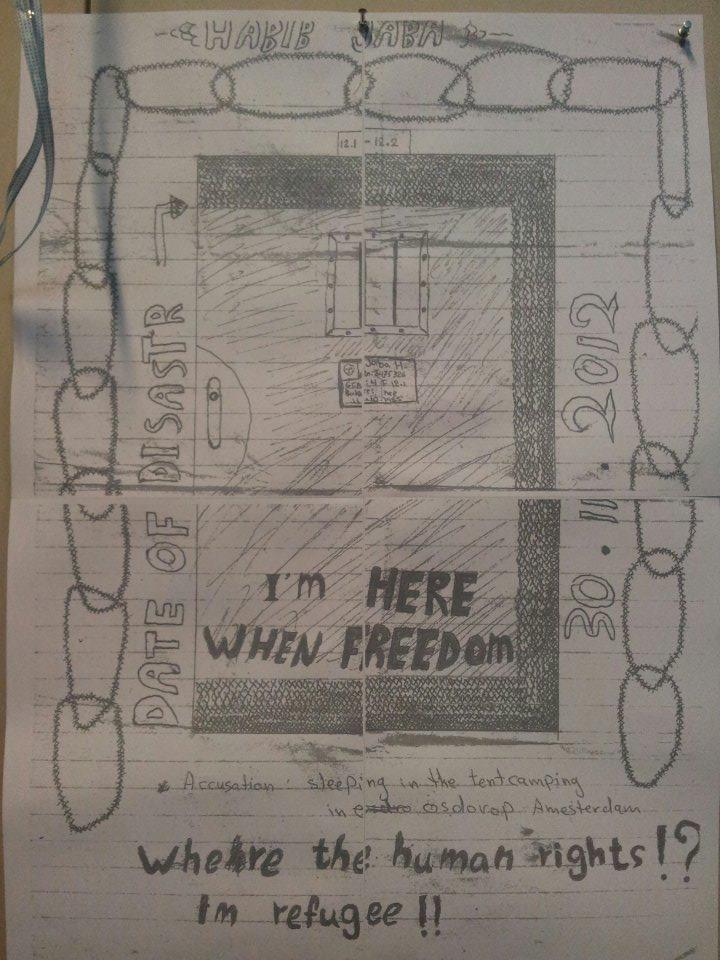 HABIB JABA
12.1 - 12.2
DATE OF DISASTR
30.11.2012
Jaba H-
I'm HERE
WHEN FREEDOm
* Accusation: sleeping in the tentcamping
in osdovop Amesterdam
Whehre the human rights!?
Im refugee!!